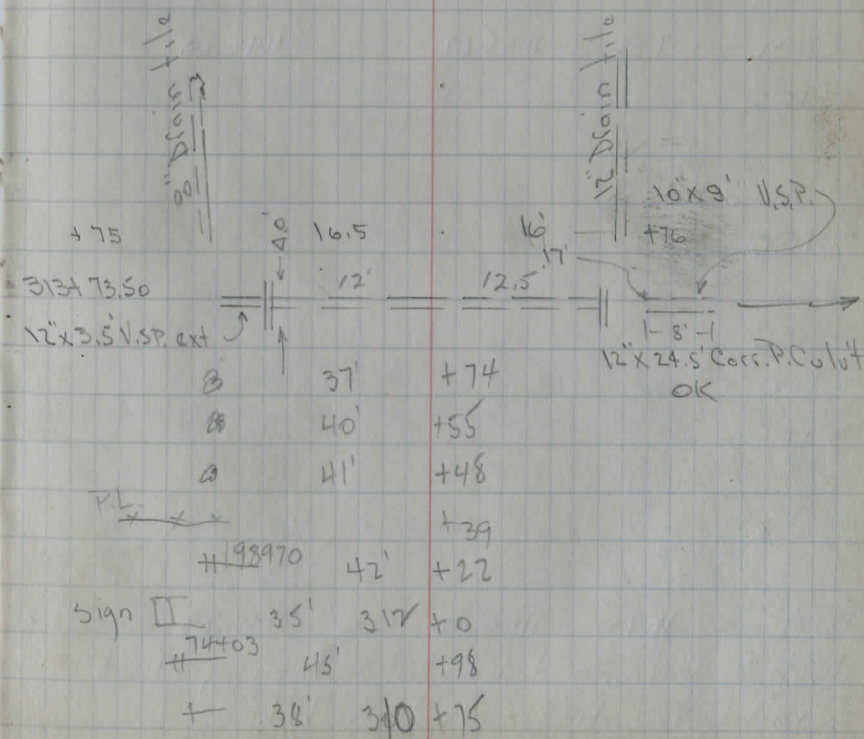 Drain tile
12" Drain tile
10" X 9' V.S.P.
+75 4.0' 16.5 16' +76
17'
313+73.50 12' 12.5'
12" X 3.5' V.S.P. ext 8'
12" X 24.5' Corr. P. Culv't
OK
37' +74
40' +55
41' +48
P.L.
+39
198970 42' +22
Sign 35' 312 +0
74403 45' +98
38' 310 +75